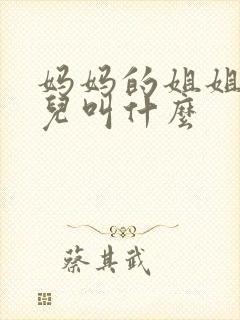 妈妈的姐姐
兒叫什麼
蔡其武